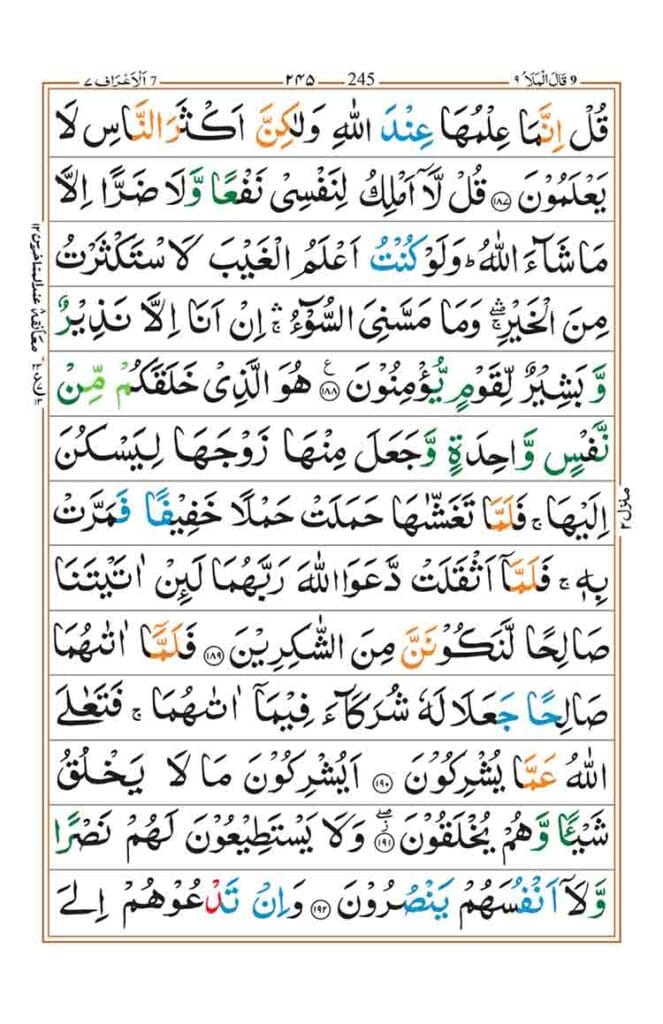 9 قَالَ الْمَلَاُ ٩ 245 ٢٤٥ 7 اَلْاَعْرَاف ٧
قُلْ اِنَّمَا عِلْمُهَا عِنْدَ اللّٰهِ وَلٰكِنَّ اَكْثَرَ النَّاسِ لَا
يَعْلَمُوْنَ ﴿۱۸۷﴾ قُلْ لَّاۤ اَمْلِكُ لِنَفْسِىْ نَفْعًا وَّلَا ضَرًّا اِلَّا
مَا شَآءَ اللّٰهُ ؕ وَلَوْ كُنْتُ اَعْلَمُ الْغَيْبَ لَاسْتَكْثَرْتُ
مِنَ الْخَيْرِ ۛۖۚ وَمَا مَسَّنِىَ السُّوْٓءُ ۛۚ اِنْ اَنَا اِلَّا نَذِيْرٌ
وَّبَشِيْرٌ لِّقَوْمٍ يُّؤْمِنُوْنَ ﴿۱۸۸﴾ ع هُوَ الَّذِىْ خَلَقَكُمْ مِّنْ
نَّفْسٍ وَّاحِدَةٍ وَّجَعَلَ مِنْهَا زَوْجَهَا لِيَسْكُنَ
اِلَيْهَا ۚ فَلَمَّا تَغَشّٰٮهَا حَمَلَتْ حَمْلًا خَفِيْفًا فَمَرَّتْ
بِهٖ ۚ فَلَمَّاۤ اَثْقَلَتْ دَّعَوَا اللّٰهَ رَبَّهُمَا لَئِنْ اٰتَيْتَنَا
صَالِحًا لَّنَكُوْنَنَّ مِنَ الشّٰكِرِيْنَ ﴿۱۸۹﴾ فَلَمَّاۤ اٰتٰٮهُمَا
صَالِحًا جَعَلَا لَهٗ شُرَكَآءَ فِيْمَاۤ اٰتٰٮهُمَا ۚ فَتَعٰلَى
اللّٰهُ عَمَّا يُشْرِكُوْنَ ﴿۱۹۰﴾ اَيُشْرِكُوْنَ مَا لَا يَخْلُقُ
شَيْـًٔا وَّهُمْ يُخْلَقُوْنَ ۖ ﴿۱۹۱﴾ وَلَا يَسْتَطِيْعُوْنَ لَهُمْ نَصْرًا
وَّلَاۤ اَنْفُسَهُمْ يَنْصُرُوْنَ ﴿۱۹۲﴾ وَاِنْ تَدْعُوْهُمْ اِلَى
معانقة ٦ عند المتاخرين ١٢
منزل ٢